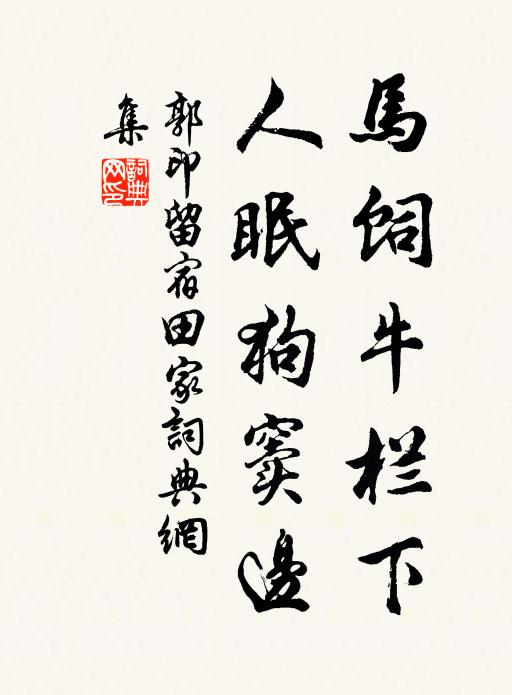 馬飼牛栏下
人眠狗窦邊
郭印留宿田家詞典網
集
詞典網印